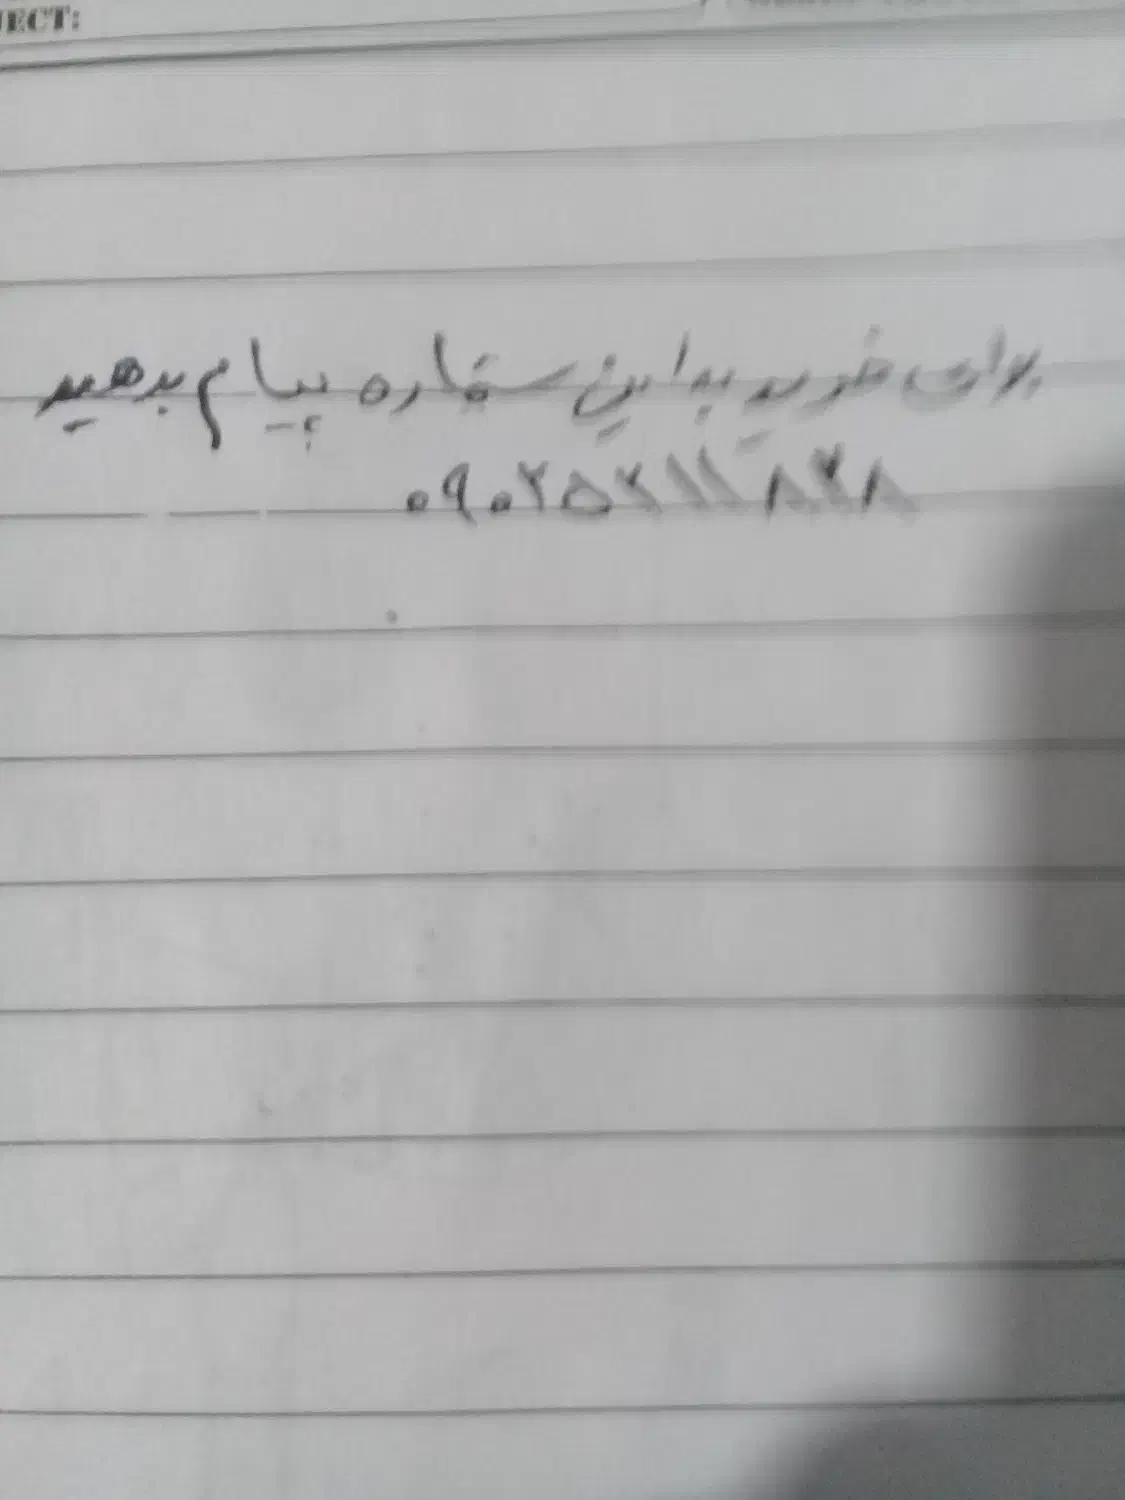 JECT:
برای خرید به این شماره پیام بدهید
۰۹۰۲۵۲۱۱۸۲۸